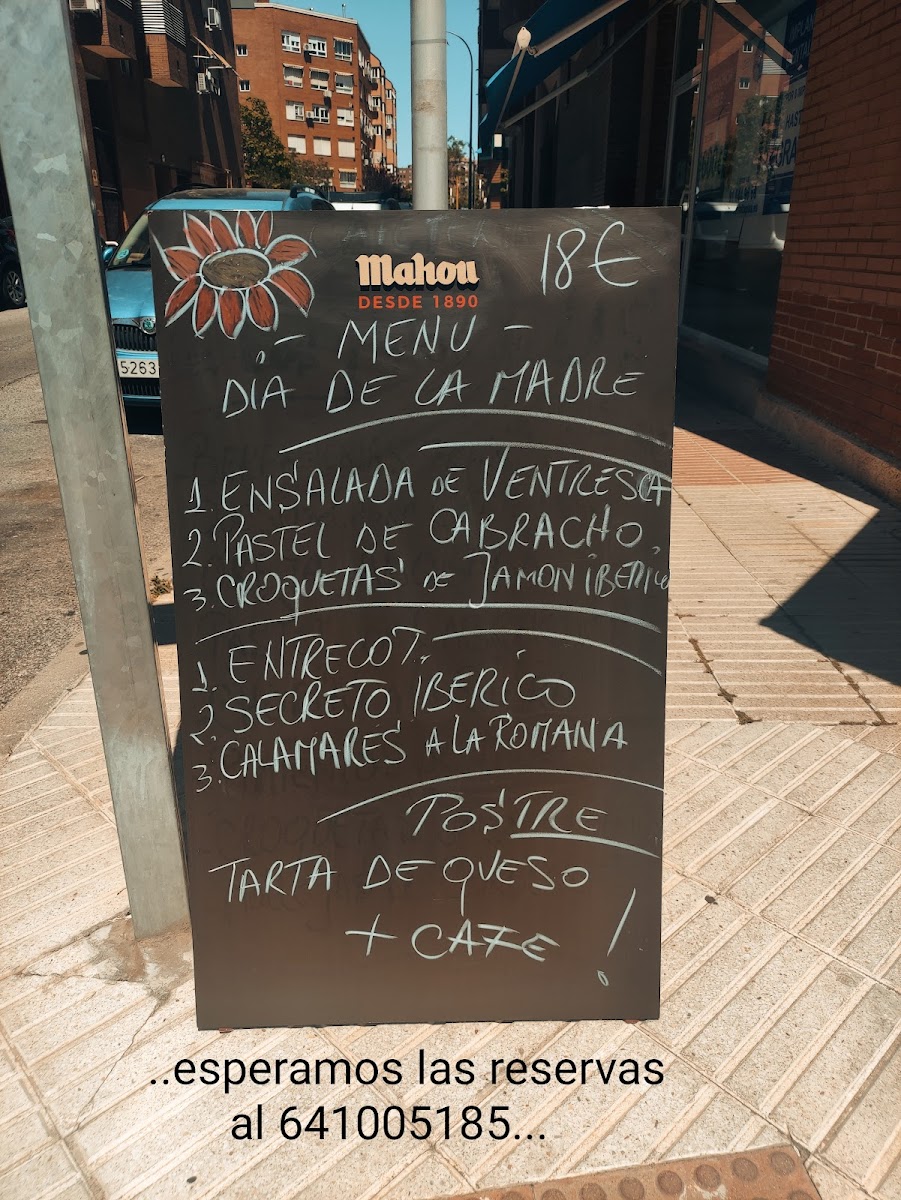 Mahou
DESDE 1890
18 €
- MENU -
DÍA DE LA MADRE
1. ENSALADA DE VENTRESCA
2. PASTEL DE CABRACHO.
3. CROQUETAS DE JAMON IBERICO
1. ENTRECOT.
2. SECRETO IBERICO
3. CALAMARES A LA ROMANA
POSTRE
TARTA DE QUESO
+ CAFE !
5263
..esperamos las reservas
al 641005185...